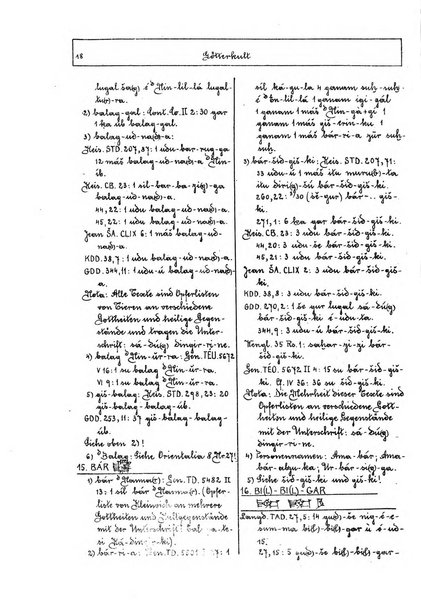 18 Götterkult
lugal šà(g) é ᵈNin-líl-lá lugal-
ku(r)-ra.
2) balag-gal: Cont. Co. II 2: 30 gar
1 ka ùb balag-gal.
3) balag-ud-na(d)-a:
Keis. STD. 207,37: 1 udu balag-ud-na(d)-a
12 máš balag-ud-na(d)-a ᵈNin-
íb.
Keis. CB. 23: 1 sil bar-ba-zi(g)-ga
balag-ud-na(d)-a.
44,22: 1 udu balag-ud-na(d)-a.
45,22: 1 udu balag-ud-na(d)-a.
Jean ŠA. CLIX 6: 1 máš balag-ud-na-
(d)-a.
KDD. 38,7: 1 udu balag-ud-na(d)-a.
GDD. 344,11: 1 udu-ú balag-ud-na(d)-
a.
Nota: Alle Texte sind Opferlisten
von Tieren an verschiedene
Gottheiten und heilige Gegen-
stände und tragen die Unter-
schrift: sá-dú(g) dingir-ri-ne.
4) balag ᵈNin-úr-ra: Gen. TÉU. 5672
V 16: 1 su balag ᵈNin-úr-ra.
VI 9: 1 su balag ᵈNin-úr-ra.
5) giš-balag: Keis. STD. 298,23: 20
giš-balag-balag-
úb.
GDD. 253,11: 37 giš-balag-balag-
úb.
Siehe oben 2)!
6) ᵈBalag: Siehe Orientalia 8, No 27!
15. BÁR
1) bár ᵈNanna(r): Gen. TD. 5482 II
13: 1 sil bár ᵈNanna(r). (Opfer-
liste von Kleinvieh an mehrere
Gottheiten und Zeitgegenstände
mit der Unterschrift: bal -a-te-
si Ka-din-(r)-ki.)
2) bár-ri-a: Gen. TD. 5501 1: 1
sil ká-gu-la 4 ganam suḫ-suḫ-
é ᵈEn-líl-lá 1 ganam igi-gál
1 ganam suḫ-suḫ ᵈNin-gá-gi 1
ganam giš-erín-ku 1
ganam 1 máš bár-ri-a zür suḫ-
suḫ.
3) bár-šid-giš-ki: Keis. STD. 207,71:
33 udu-ú 1 máš itu muru(b)-ta
itu diri(g)-šú bár-šid-giš-ki.
260,22: ³⁰(éš-gur) bár-.. giš-
ki.
271,1: 6 ka gar bár-šid-giš-ki.
Keis. CB. 23: 3 udu-še bár-šid-giš-ki.
44,20: 3 udu-še bár-šid-giš-ki.
45,21: 3 udu-še bár-šid-giš-ki.
Jean ŠA. CLIX 2: 3 udu bár-šid-giš-
ki.
KDD. 38,8: 3 udu bár-šid-giš-ki.
GDD. 270,2: 1 še gur lugal sá-dú(g)
bár-šid-giš-ki itu-1-
ta.
344,9: 3 udu-ú bár-šid-giš-ki.
Wengl. 35 Rs. 1: saḫar-zi bár-šid-
giš-ki.
Gen. TÉU. 5672 II 4: 15 su bár-šid-giš-ki.
Cf. IV 36: 36 su šid-giš-ki.
Nota: Die Mehrheit dieser Texte sind
Opferlisten an verschiedene Gott-
heiten und heilige Gegenstände
mit der Unterschrift: sá-dú(g)
dingir-ri-ne.
4) Personennamen: Ama-bár; Ama-
bár-alg-ka; Ur-bár-si-ga.
5) Siehe šid-giš-ki und giš-ki!
16. BI(L)-BI(L)-GAR
Langd. TAD. 27,5: 14 gud)-še níg-é-e-
sum-ma bi(l)-bi(l)-gar itu é-ud-
15.
27,15: 5 gud)-še bi(l)-bi(l)-gar-